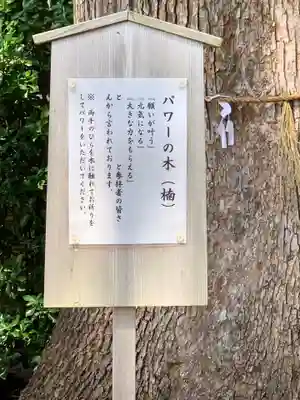 パワーの木（楠）
『願いが叶う』
『元気になる』
『大きな力をもらえる』
と　　　　と参拝者の皆さ
んから言われております。
※ 両手のひらを木に触れてお祈りを
してパワーをいただいてください。